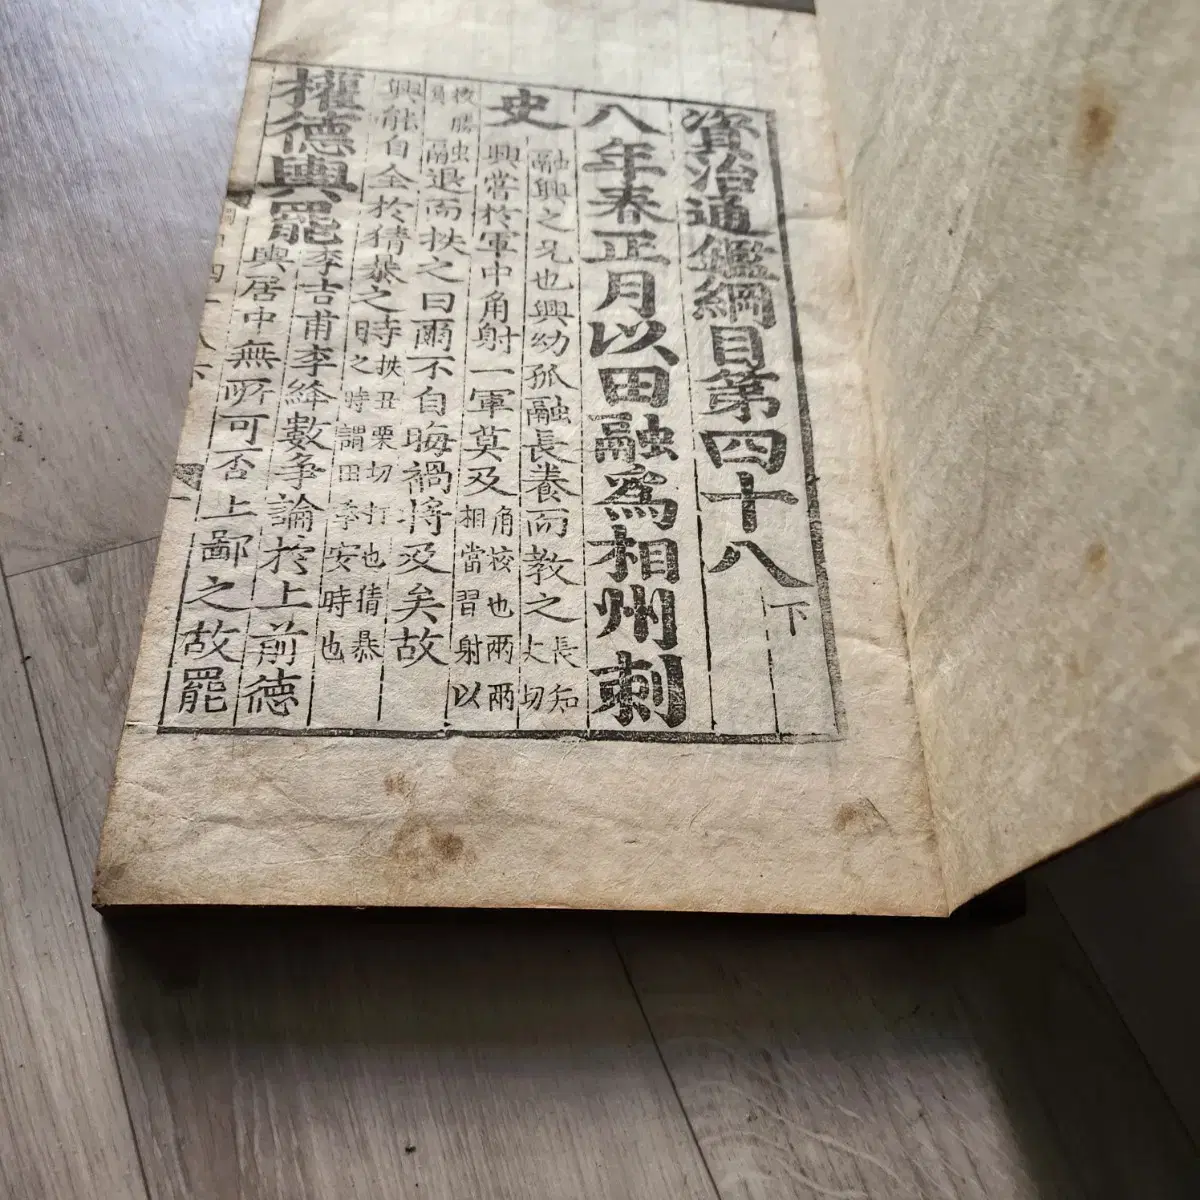 資治通鑑綱目第四十八下
八年春正月以田融爲相州刺
史
融興之兄也興幼孤融長養而教之長知丈切
興嘗於軍中角射一軍莫及角校也兩兩相當習射以
校勝負融退而抶之曰爾不自晦禍將及矣故
興能自全於猜暴之時抶丑栗切打也猜暴之時謂田季安時也
權德輿罷
李吉甫李絳數爭論於上前德
輿居中無所可否上鄙之故罷